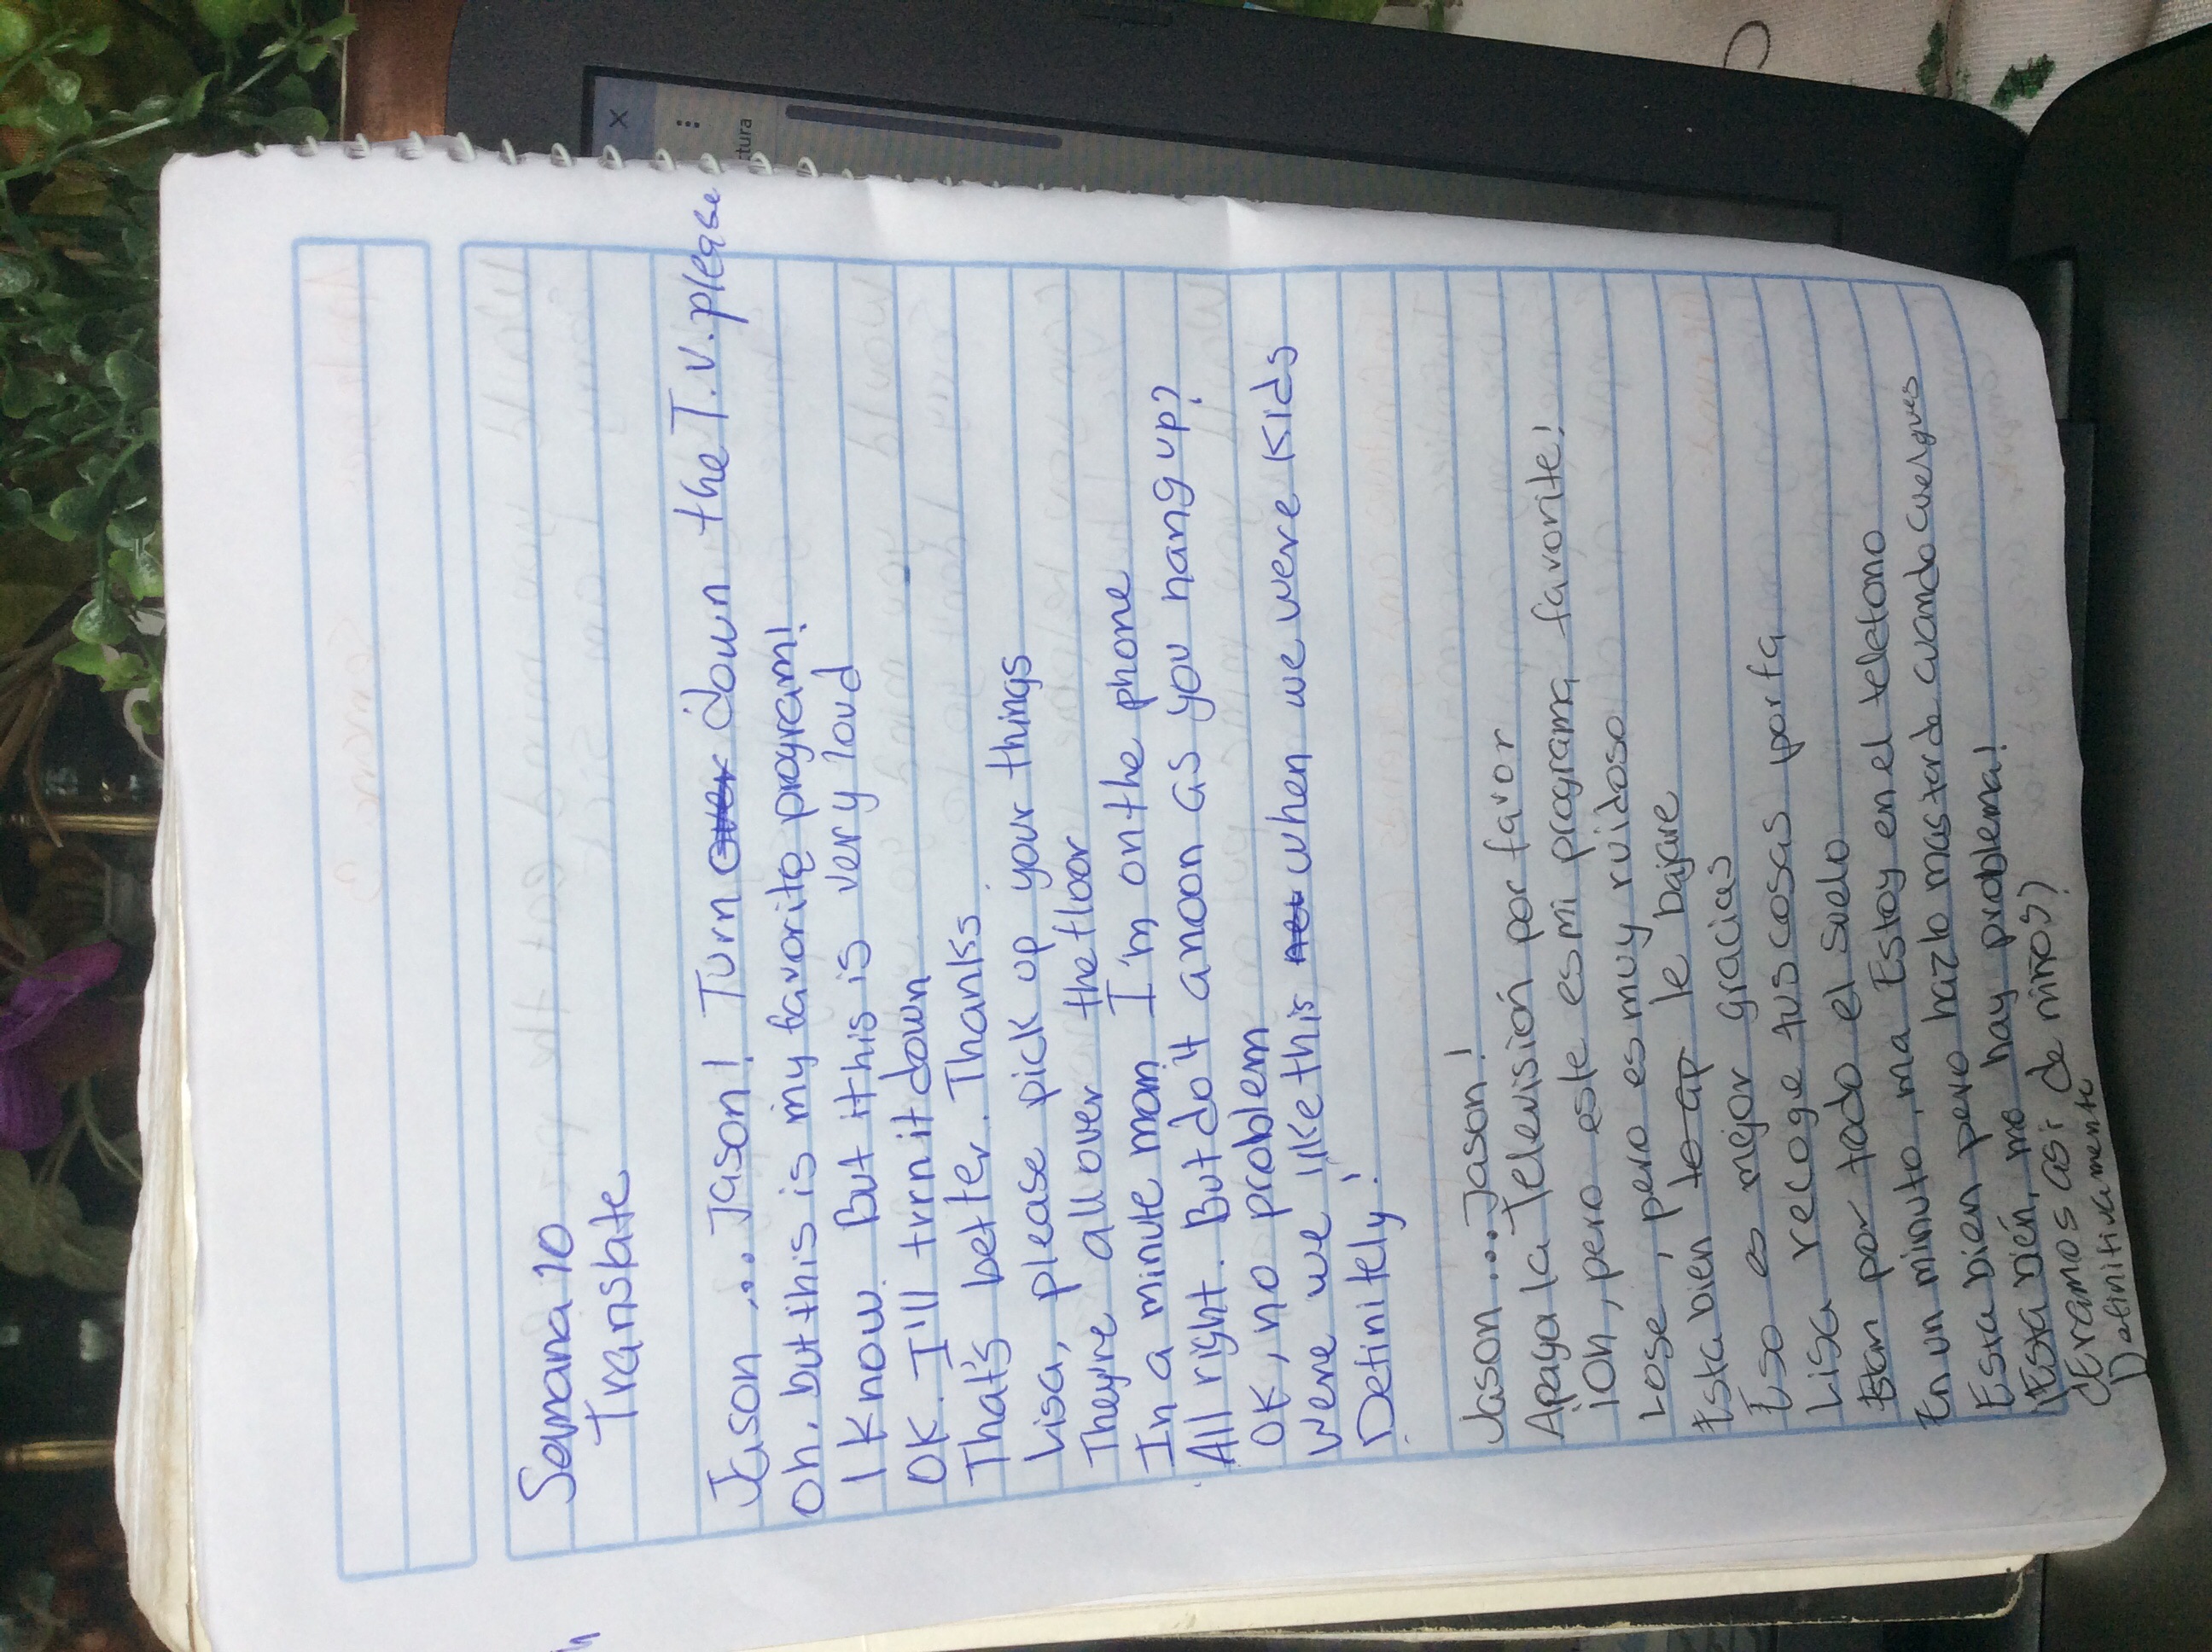 Semana 10
Translate
Jason ... Jason! Turn over down the T.V. please
Oh, but this is my favorite program!
I know. But it this is very loud
OK. I'll trrn it down
That's better. Thanks
Lisa, please pick up your things
They're all over the floor
In a minute mom I'm on the phone
All right. But do it anoon as you hang up?
OK, no problem
Were we like this when we were kids
Definitely!
Jason ... Jason!
Apaga la Televisión por favor
ion, pero este es mi programa favorite!
Lose, pero es muy ruidoso
Esta bien to ap le bajare
Eso es mejor gracias
Lisa recoge tus cosas porfa
Estan por todo el suelo
En un minuto, ma Estoy en el telefono
Esta bien pero hazlo mas tarde cuando cuelgues
Esta bién, no hay problema!
¿Eramos asi de niños?
Definitivamente
ctura